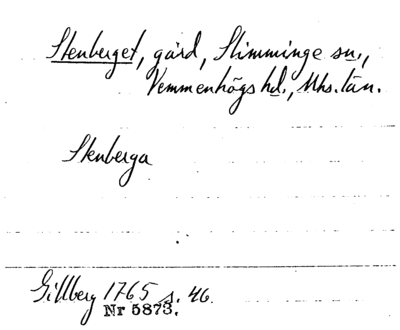 Stenberget, gård, Slimminge sn.,
Vemmenhögs hd., Mhs. län.
Stenberga
Gillberg 1765 s. 46.
Nr 5873.